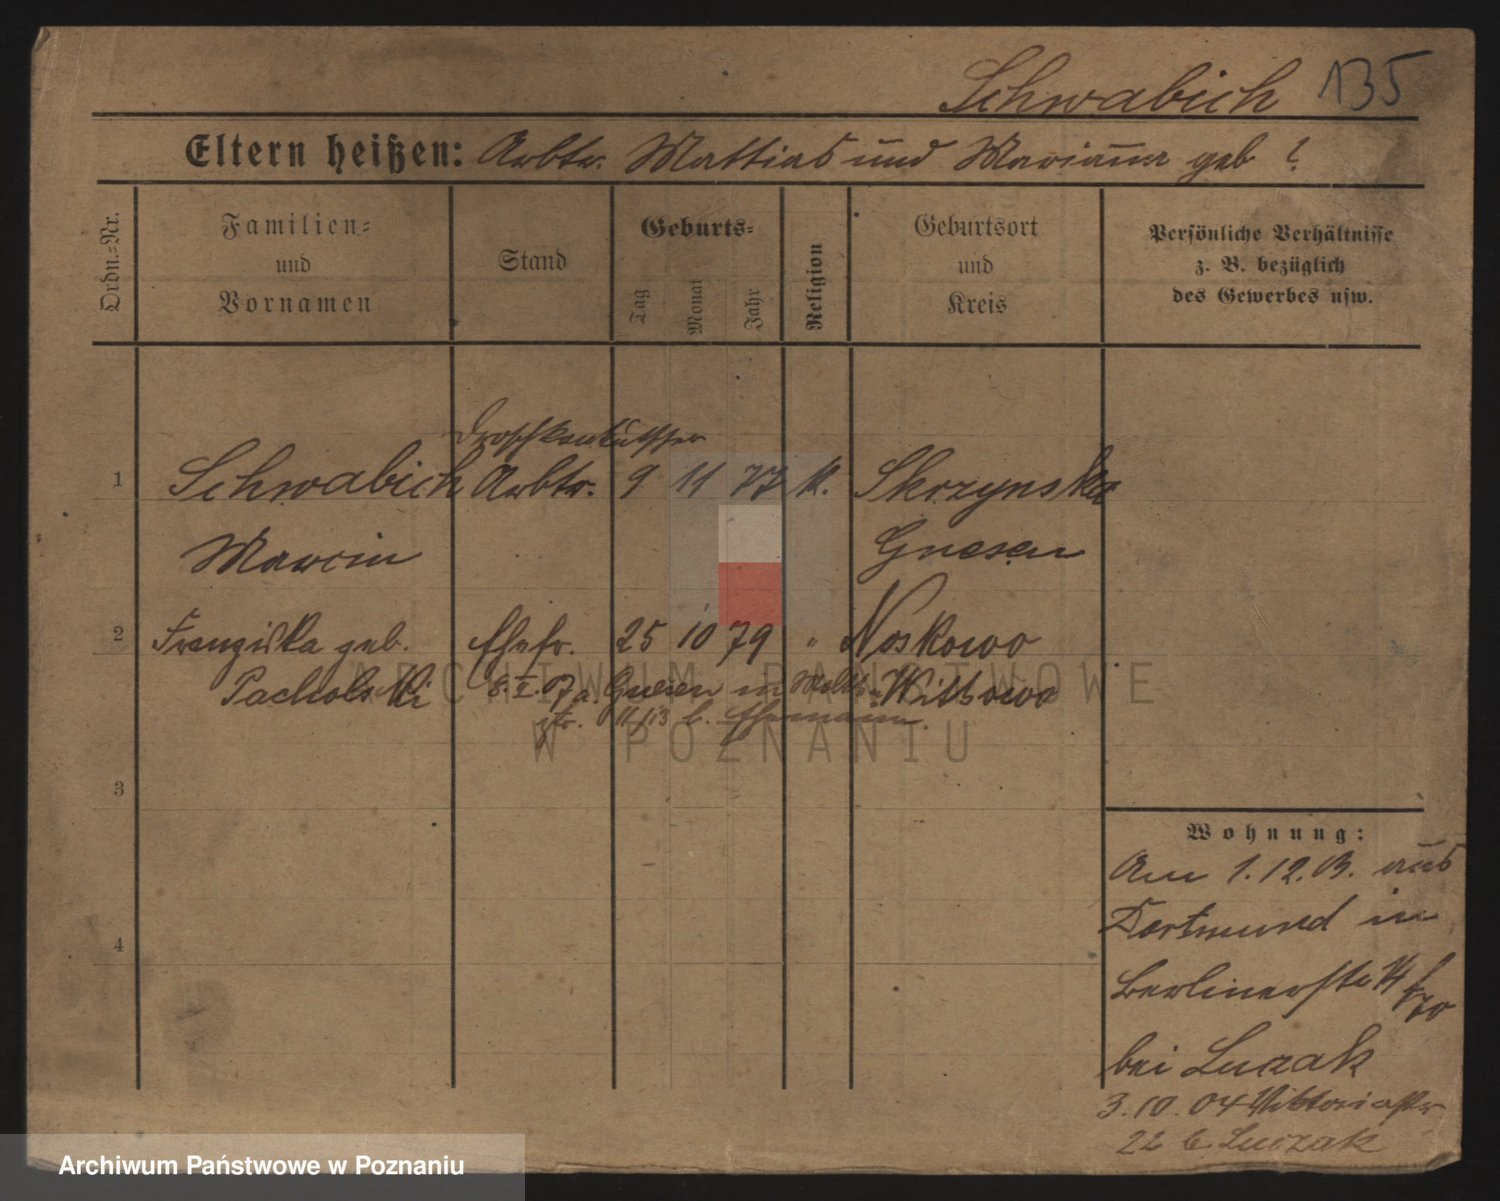 Schwabich 135
Eltern heißen: Arbtr. Mattias und Marianna geb ?
Ordn.=Nr.
Familien=
und
Vornamen
Stand
Geburts=
Tag
Monat
Jahr
Religion
Geburtsort
und
Kreis
Persönliche Verhältnisse
z. B. bezüglich
des Gewerbes usw.
Droschkenkutscher
1 Schwabich Arbtr. 9 11 77 k. Skrzynska
Marcin Gnesen
2 Franziska geb. Ehefr. 25 10 79 " Noskowo
Pacholski 8. X. 07 a. Gnesen in Witkowo
ztr. 11/13 b. Ehemann.
3
4
Wohnung:
Am 1.12.03. aus
Dortmund in
Berlinerstr
bei Luzak
3.10.04 Viktoriastr
22 b. Luzak
ARCHIWUM PAŃSTWOWE
W POZNANIU
Archiwum Państwowe w Poznaniu